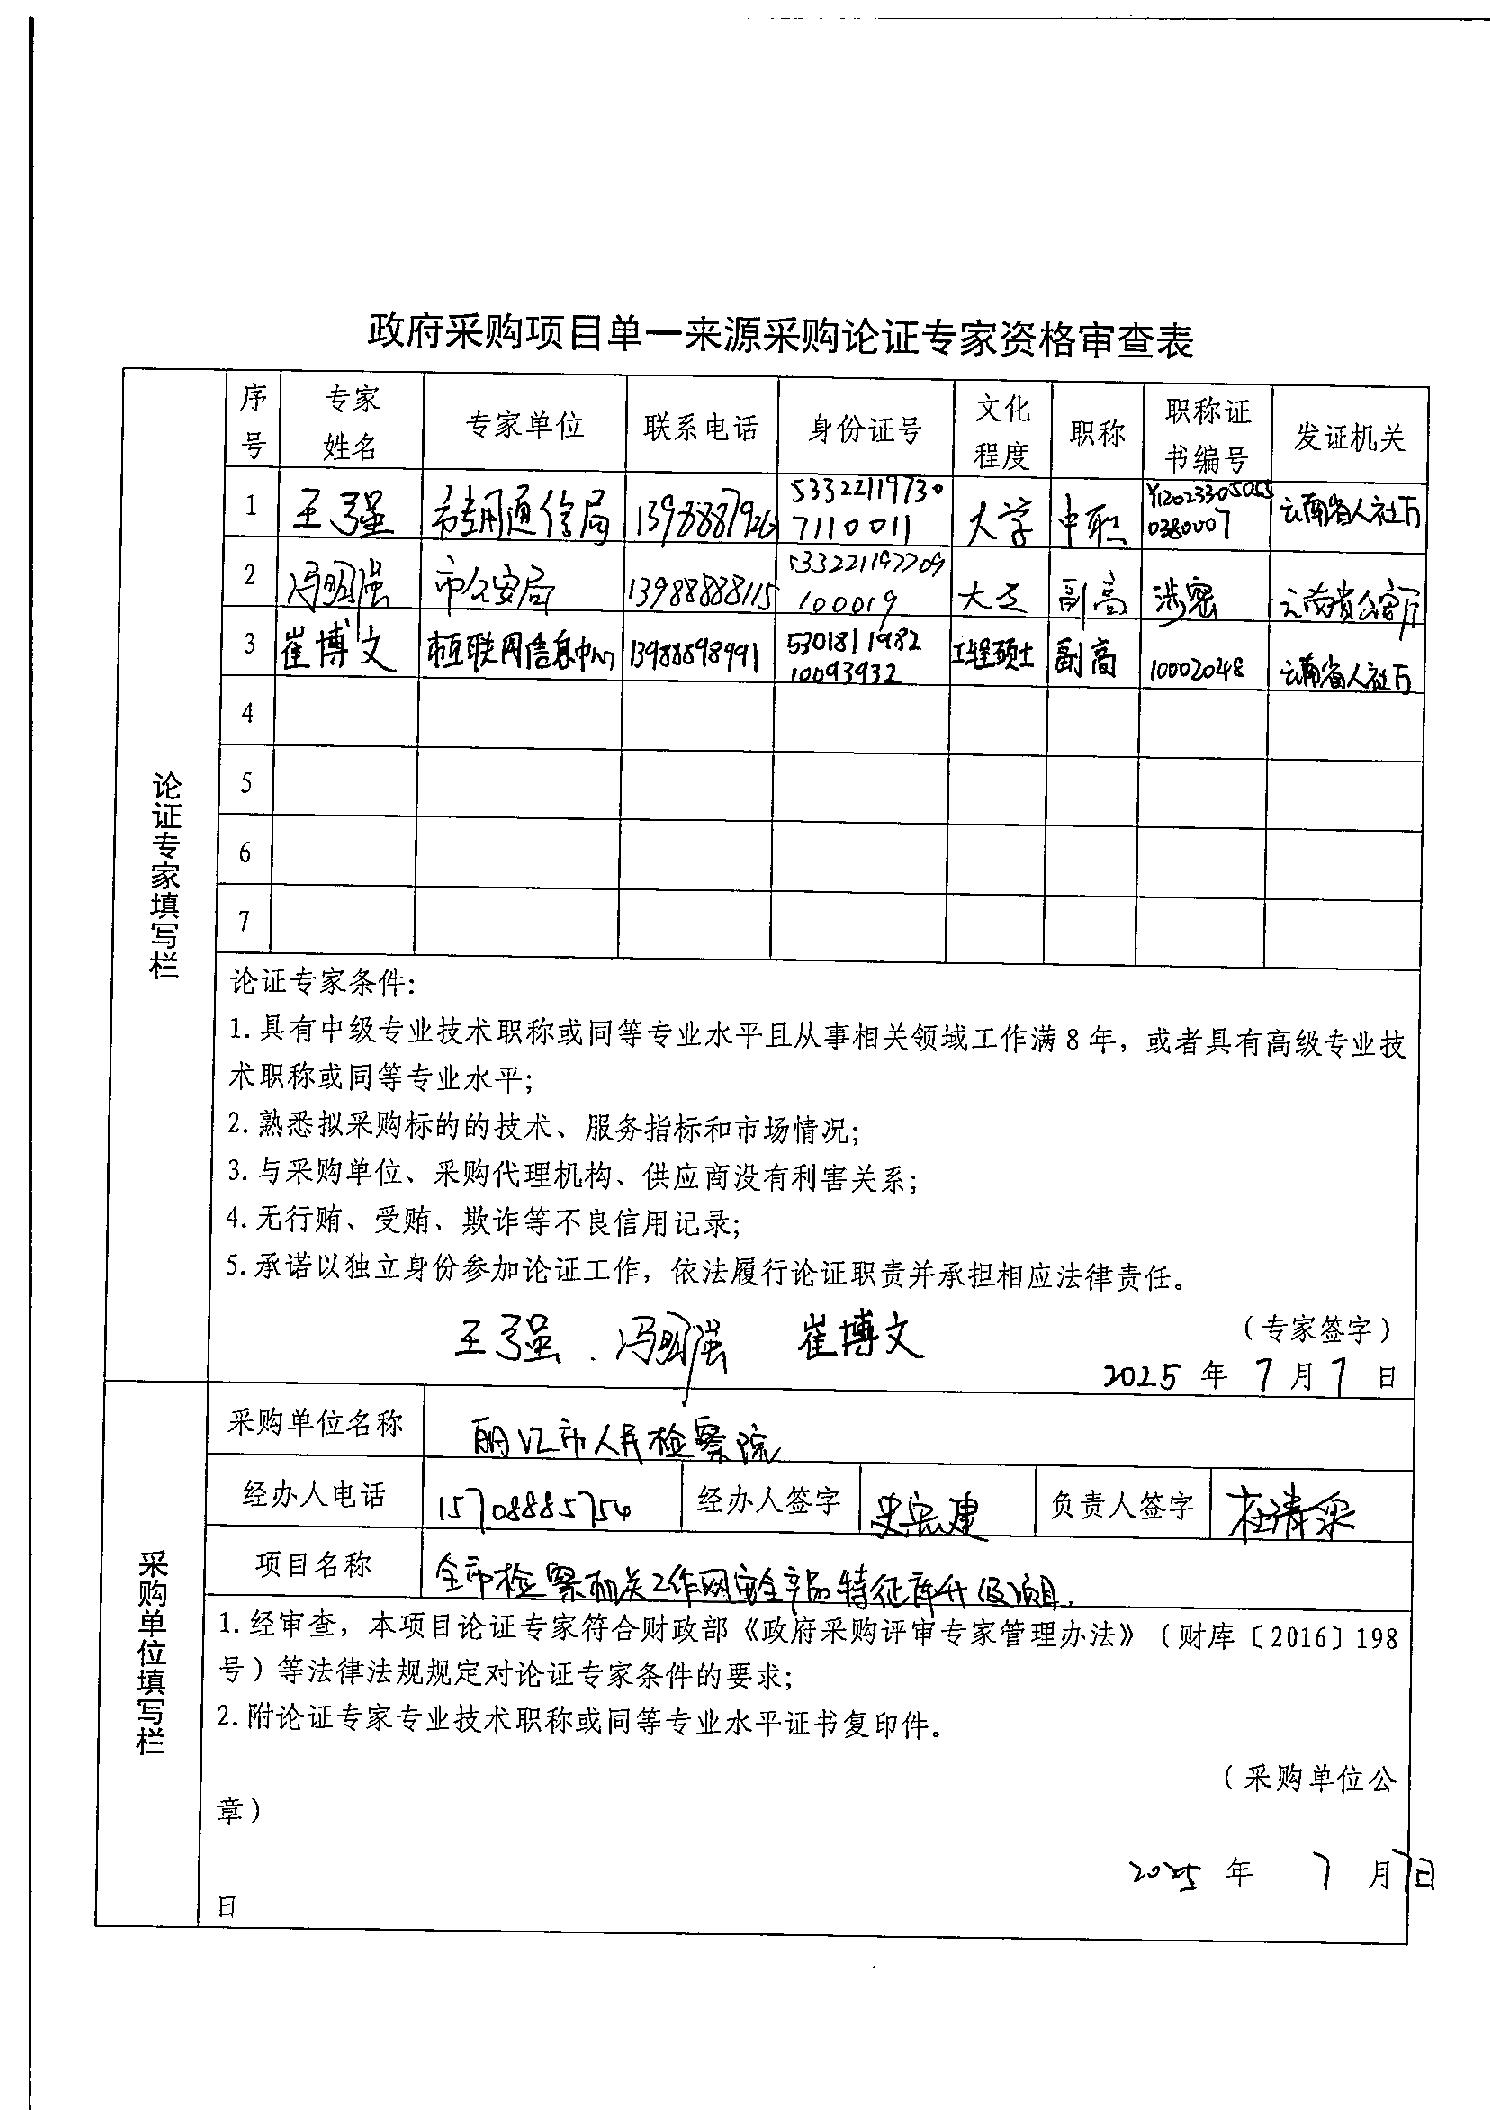 政府采购项目单一来源采购论证专家资格审查表
论证专家填写栏
序号 专家姓名 专家单位 联系电话 身份证号 文化程度 职称 职称证书编号 发证机关
1 王弓强 市专用通信局 大学 中职 云南省人社厅
2 冯明强 市公安局 13988888115 副高 涉密
3 崔博文 市互联网信息中心 13988898991 工程硕士 副高 10002048 云南省人社厅
4
5
6
7
论证专家条件:
1.具有中级专业技术职称或同等专业水平且从事相关领域工作满8年，或者具有高级专业技
术职称或同等专业水平;
2.熟悉拟采购标的的技术、服务指标和市场情况;
3.与采购单位、采购代理机构、供应商没有利害关系;
4.无行贿、受贿、欺诈等不良信用记录;
5.承诺以独立身份参加论证工作，依法履行论证职责并承担相应法律责任。
王弓强 . 冯明强 崔博文 （专家签字）
2025 年 7 月 7 日
采购单位填写栏
采购单位名称 丽江市人民检察院
经办人电话 15708885754 经办人签字 负责人签字
项目名称 全市检察机关工作网安全产品特征库升级项目.
1.经审查，本项目论证专家符合财政部《政府采购评审专家管理办法》（财库〔2016〕198
号）等法律法规规定对论证专家条件的要求;
2.附论证专家专业技术职称或同等专业水平证书复印件。
（采购单位公
章）
2025 年 7 月 7 日
日